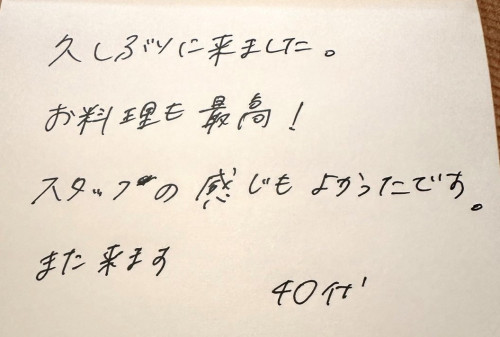 久しぶりに来ました。
お料理も最高!
スタッフの感じもよかったです。
また来ます
40代